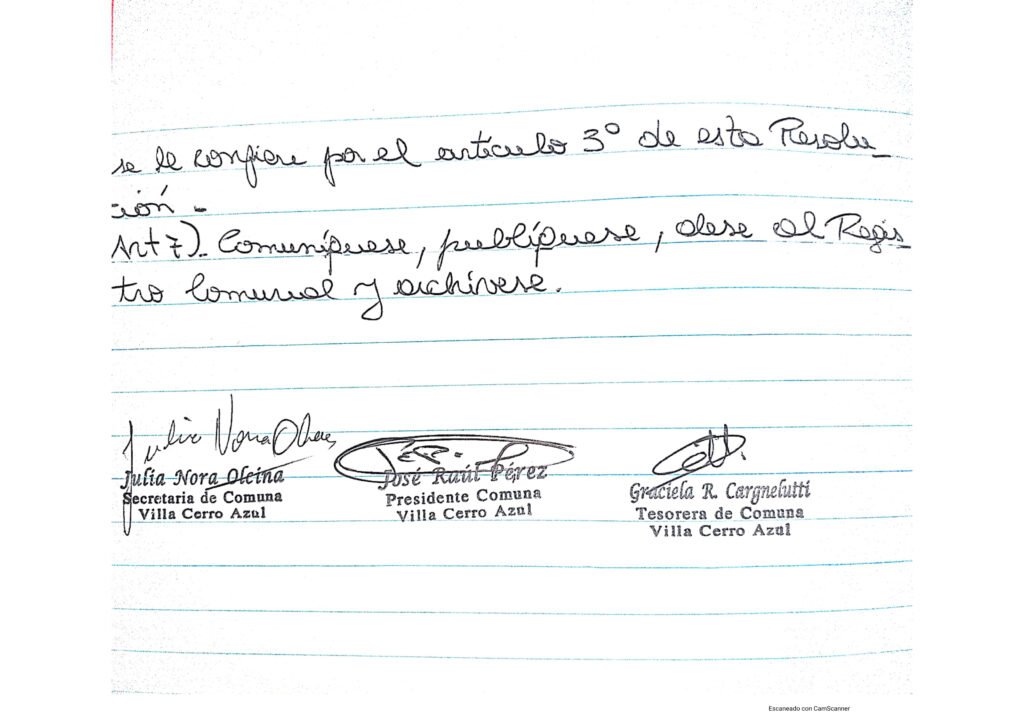 se le confiere por el artículo 3° de esta Resolu_
ción -
Art 7)_ Comuníquese, publíquese, dese al Regis
tro Comunal y archívese.
Julia Nora Olcina
Julia Nora Olcina
Secretaria de Comuna
Villa Cerro Azul
José Raúl Pérez
Presidente Comuna
Villa Cerro Azul
Graciela R. Cargnelutti
Tesorera de Comuna
Villa Cerro Azul
Escaneado con CamScanner